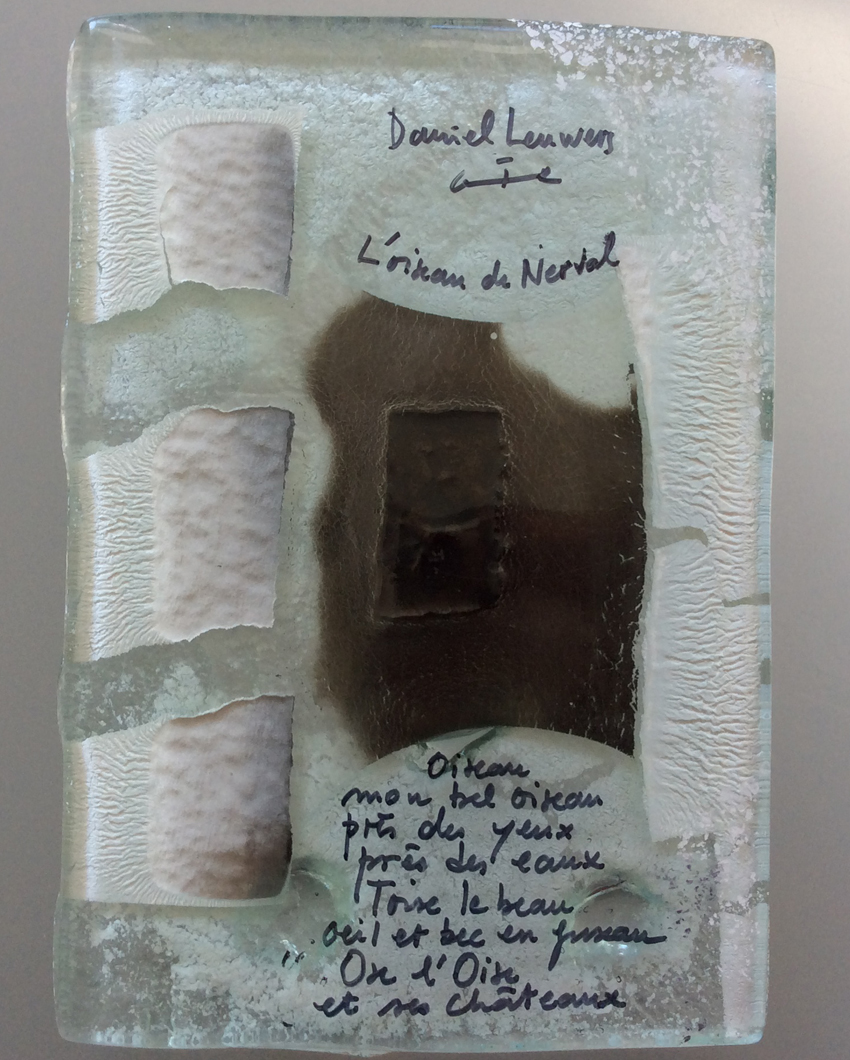 Daniel Leuwers
L'oiseau de Nerval
Oiseau
mon bel oiseau
près des yeux
près des eaux
Toise le beau
oeil et bec en fuseau
Ose l'Oise
et ses châteaux